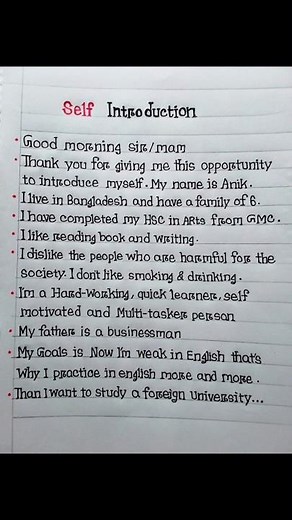 Self Introduction
• Good morning sir/mam
• Thank you for giving me this opportunity
to introduce myself. My name is Anik.
• I live in Bangladesh and have a family of 6.
• I have completed my HSC in ARts from GMC.
• I like reading book and writing.
• I dislike the people who are harmful for the
society. I don't like smoking & drinking.
• I'm a Hard-Working, quick learner, self
motivated and Multi-tasker person
• My father is a businessman
• My Goals is Now I'm weak in English that's
Why I practice in english more and more.
• Than I want to study a foreign University...